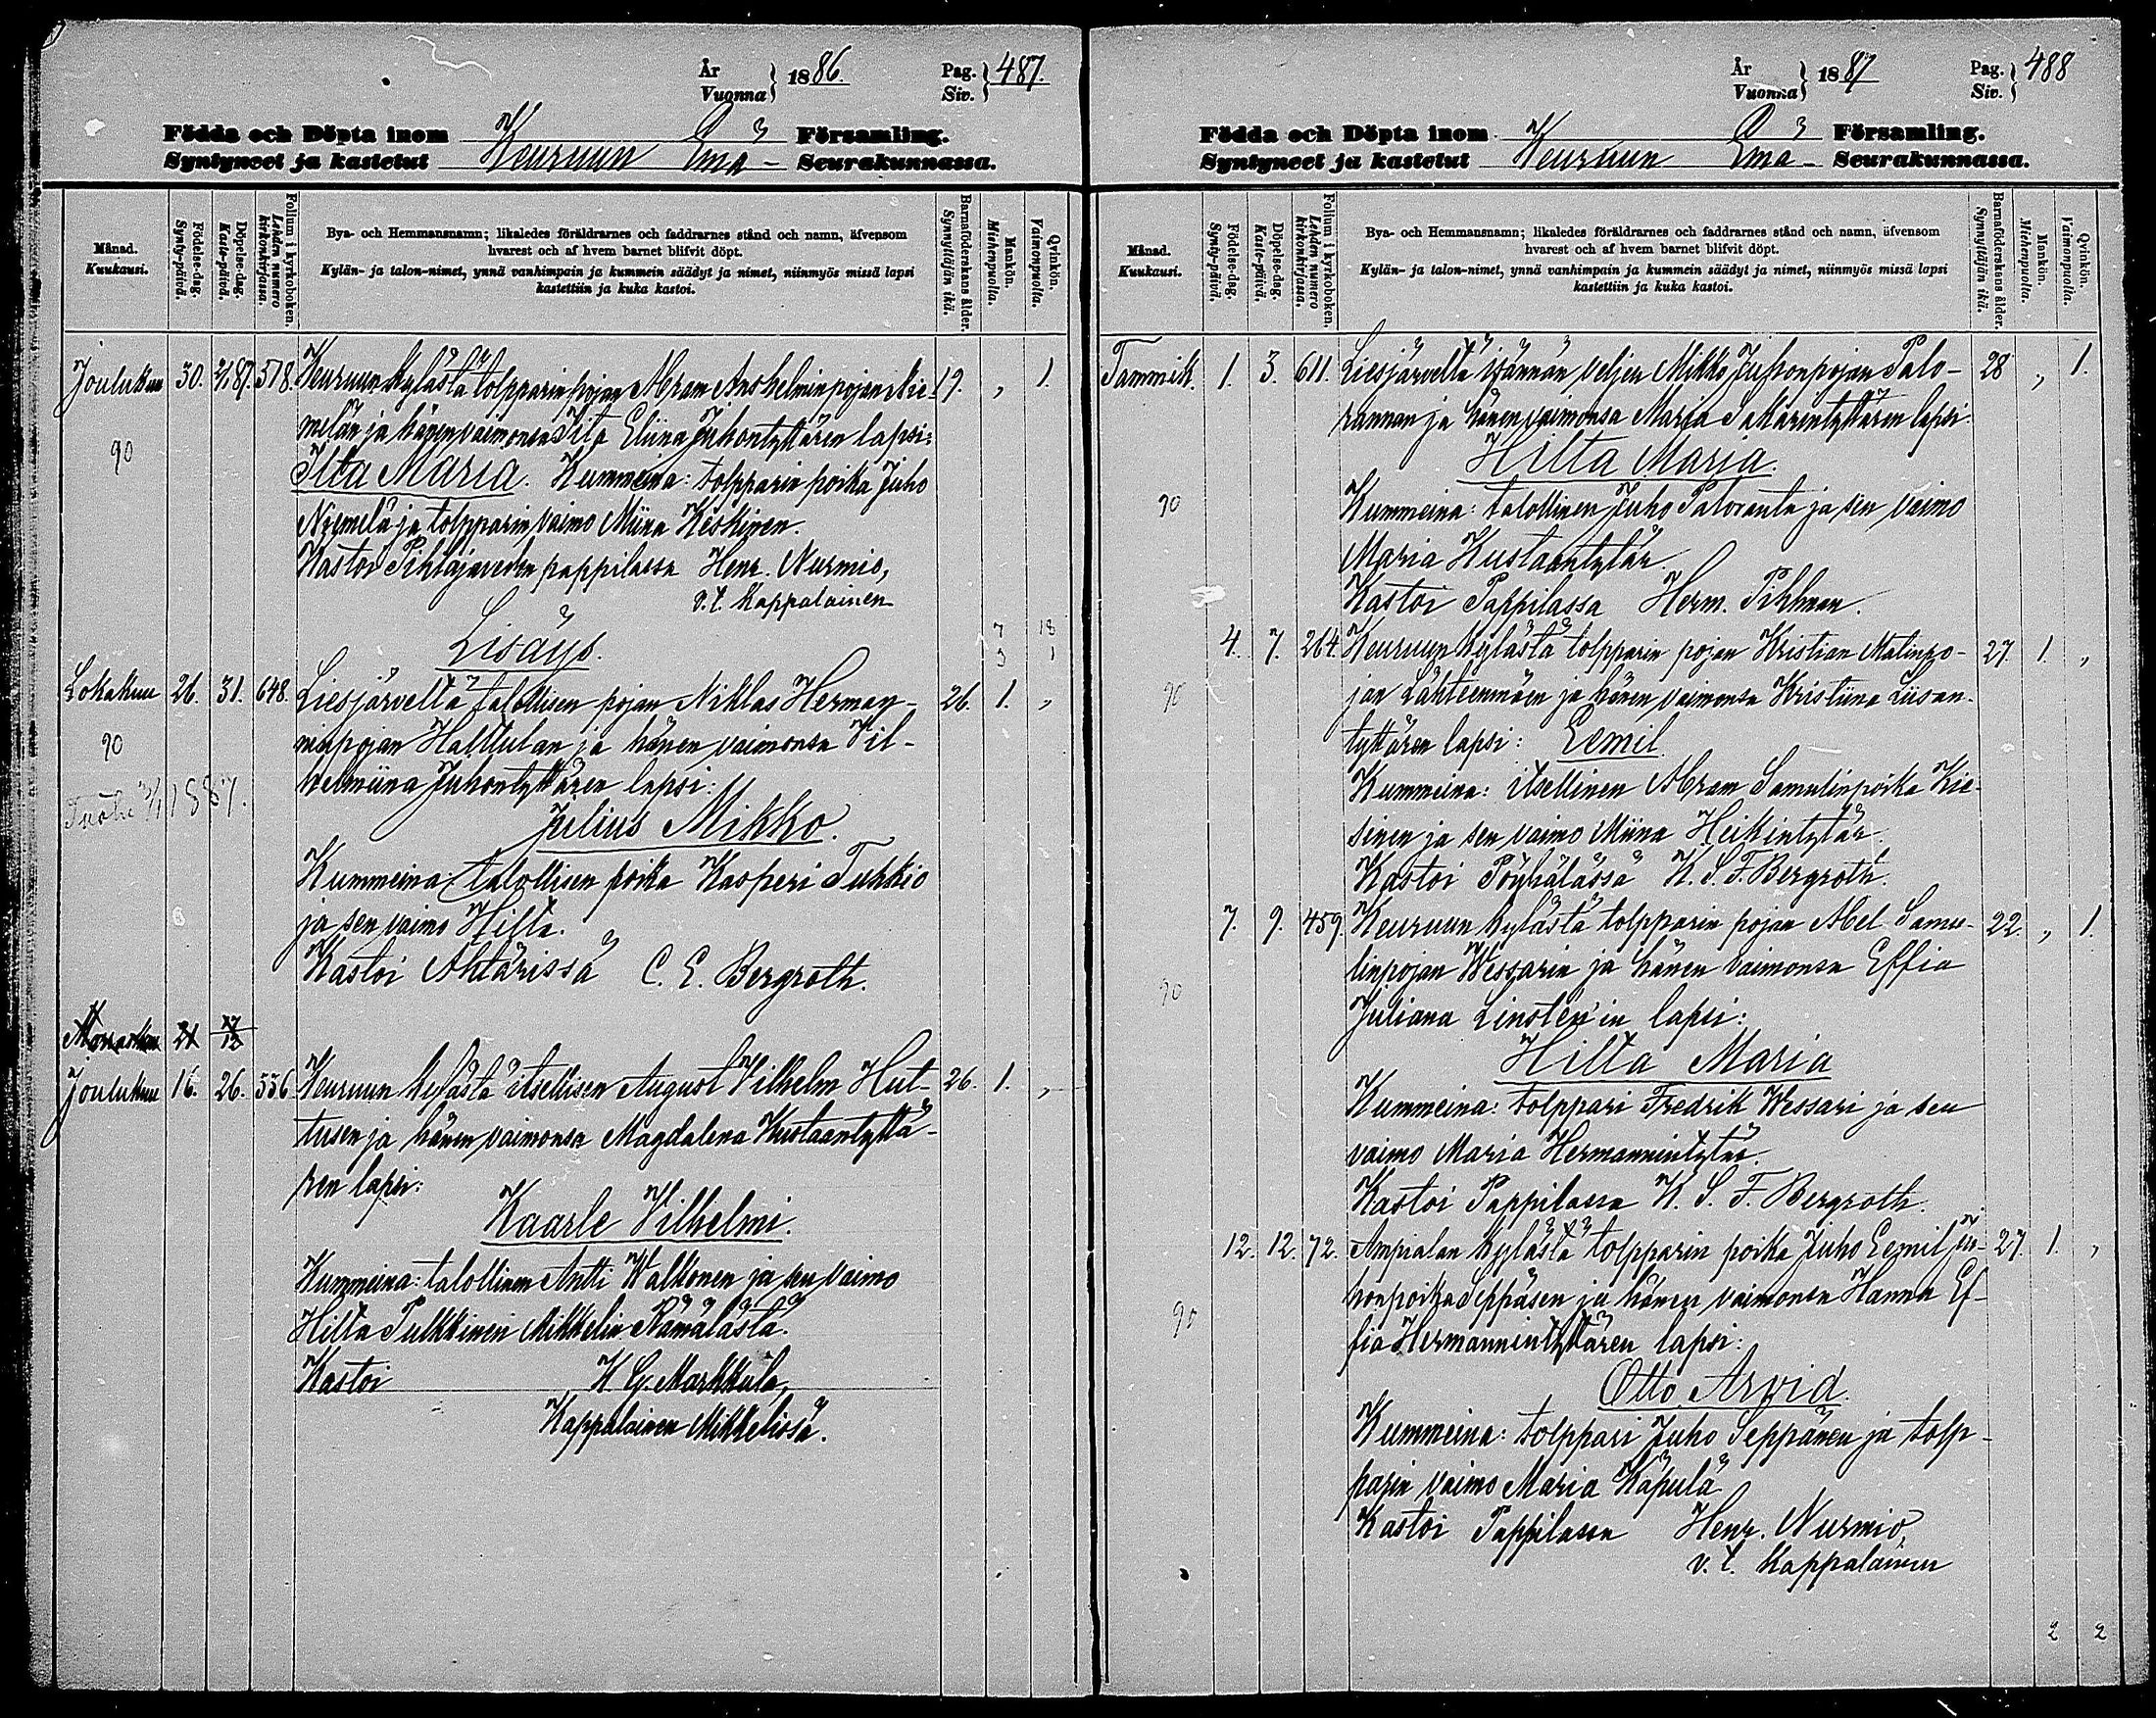 År
Vuonna } 1886.
Pag.
Siv. } 487.
Födda och Döpta inom Församling.
Syntyneet ja kastetut Keuruun Emä- Seurakunnassa.
Månad.
Kuukausi.
Födelse-dag.
Synty-päivä.
Döpelse-dag.
Kaste-päivä.
Folium i kyrkoboken.
Lehden numero
kirkonkirjassa.
Bya- och Hemmansnamn; likaledes föräldrarnes och faddrarnes stånd och namn, äfvensom
hvarest och af hvem barnet blifvit döpt.
Kylän- ja talon-nimet, ynnä vanhimpain ja kummein säädyt ja nimet, niinmyös missä lapsi
kastettiin ja kuka kastoi.
Barnaföderskans ålder.
Synnyttäjän ikä.
Mankön.
Miehenpuolia.
Qvinkön.
Vaimonpuolia.
Joulukuu 30. 2/1 87. 578. Keuruun kylästä tolpparin pojan Abram Anshelminpojan Nie- 19. „ 1.
melän ja hänen vaimonsa Iita Eliina Juhontyttären lapsi:
90
Ilta Maria. Kummeina: tolpparin poika Juho
Nyemelä ja tolpparin vaimo Miina Keskinen.
Kastoi Pihlajaveden pappilassa Henr. Nurmio,
v.t. kappalainen
7 18
Lisäys.
3 1
Lokakuu 26. 31. 648. Liesjärveltä talollisen pojan Niklas Herman- 26. 1. „
ninpojan Halttulan ja hänen vaimonsa Vil-
90
helmiina Juhontyttären lapsi:
1887.
Julius Mikko.
Kummeina: talollisen poika Kasperi Tukkio
ja sen vaimo Hilta.
Kastoi Ahtärissä C. E. Bergroth.
Marraskuu 21
Joulukuu 16. 26. 556 Keuruun kylästä itsellisen August Vilhelm Hut- 26. 1. „
tusen ja hänen vaimonsa Magdalena Kustaantyttä-
ren lapsi:
Kaarle Vilhelmi.
Kummeina: talollinen Antti Walkonen ja sen vaimo
Hilta Pulkkinen Mikkelin Rämälästä.
Kastoi K G. Markkula,
Kappalainen Mikkelissä.
År
Vuonna } 1887
Pag.
Siv. } 488
Födda och Döpta inom Församling.
Syntyneet ja kastetut Keuruun Emä- Seurakunnassa.
Månad.
Kuukausi.
Födelse-dag.
Synty-päivä.
Döpelse-dag.
Kaste-päivä.
Folium i kyrkoboken.
Lehden numero
kirkonkirjassa.
Bya- och Hemmansnamn; likaledes föräldrarnes och faddrarnes stånd och namn, äfvensom
hvarest och af hvem barnet blifvit döpt.
Kylän- ja talon-nimet, ynnä vanhimpain ja kummein säädyt ja nimet, niinmyös missä lapsi
kastettiin ja kuka kastoi.
Barnaföderskans ålder.
Synnyttäjän ikä.
Mankön.
Miehenpuolia.
Qvinkön.
Vaimonpuolia.
Tammik. 1. 3. 611. Liesjärveltä isännän veljen Mikko Juhonpojan Palo- 28 „ 1.
rannan ja hänen vaimonsa Maria Sakarintyttären lapsi:
Hilta Maria.
90
Kummeina: talollinen Juho Paloranta ja sen vaimo
Maria Kustaantytär.
Kastoi Pappilassa Herm. Pihlman.
4. 7. 264. Keuruun kylästä tolpparin pojan Kristian Matinpo- 27. 1. „
90
jan Lähteenmäen ja hänen vaimonsa Kristiina Liisan-
tyttären lapsi: Eemil.
Kummeina: itsellinen Abram Samulinpoika Kie-
sinen ja sen vaimo Miina Heikintytär.
Kastoi Pöyhälässä K. S. F. Bergroth.
7. 9. 459. Keuruun kylästä tolpparin pojan Abel Samu- 22. „ 1.
linpojan Wessarin ja hänen vaimonsa Effia
90
Juliana Linsten'in lapsi:
Hilta Maria
Kummeina: tolppari Fredrik Wessari ja sen
vaimo Maria Hermannintytär.
Kastoi Pappilassa K. S. F. Bergroth.
12. 12. 72. Ampialan kylästä tolpparin poika Juho Eemil Ju- 27. 1. „
honpoika Seppäsen ja hänen vaimonsa Hanna Ef-
90
fia Hermannintyttären lapsi:
Otto Arvid.
Kummeina: tolppari Juho Seppänen ja tolp-
parin vaimo Maria Käpulä
Kastoi Pappilassa Henr. Nurmio,
v. t. kappalainen
2 2